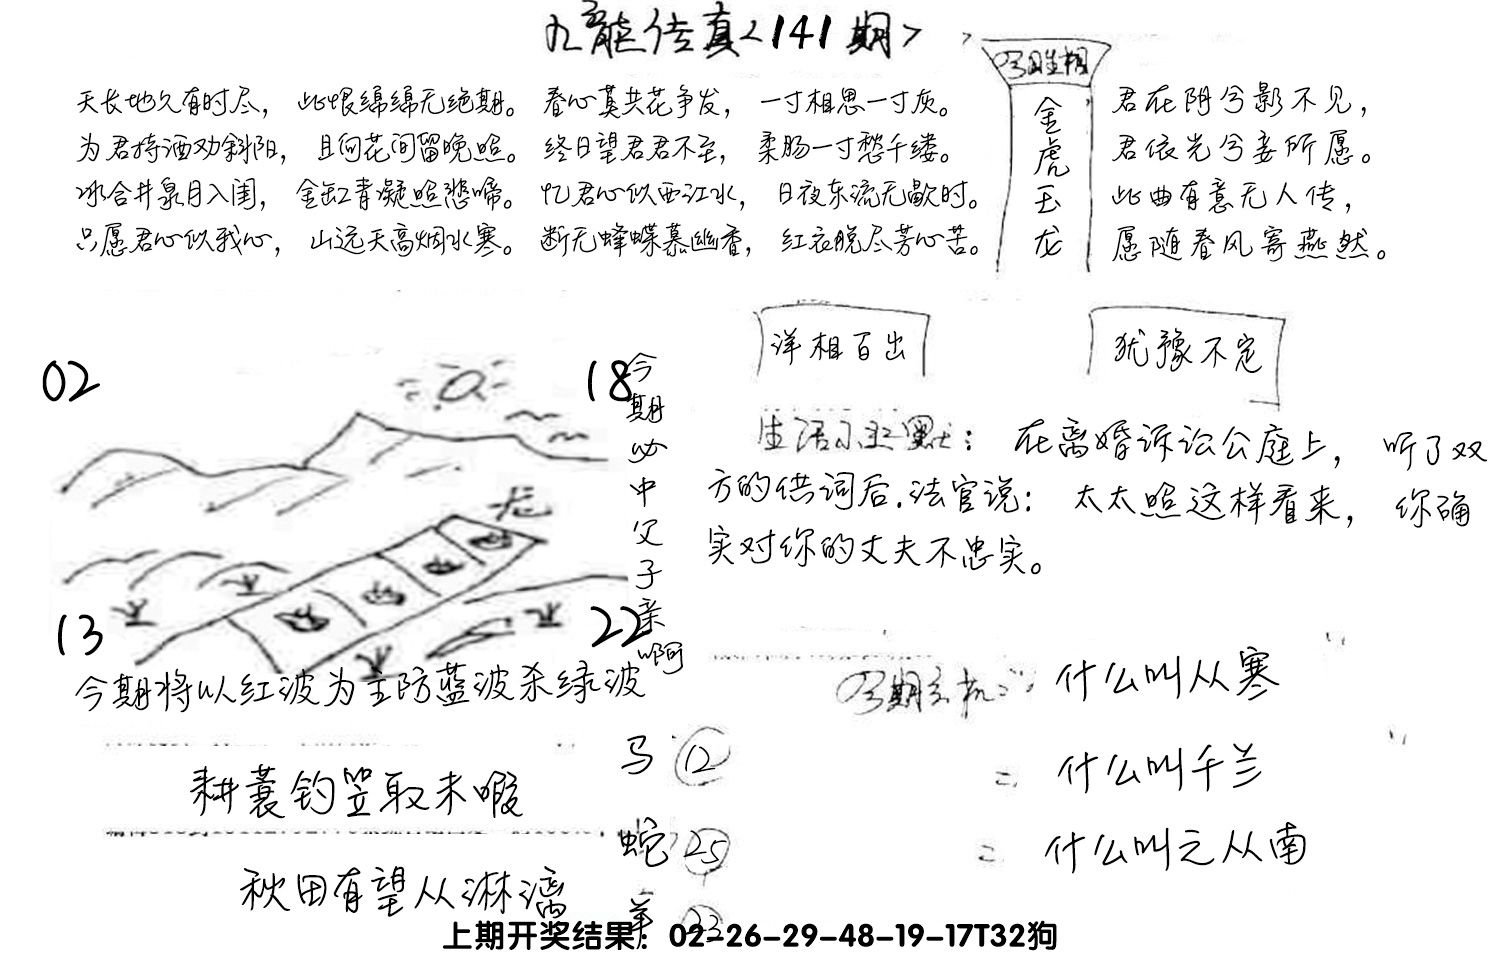 九龙传真<141期>
天长地久有时尽，此恨绵绵无绝期。春心莫共花争发，一寸相思一寸灰。
为君持酒劝斜阳，且向花间留晚照。终日望君君不至，柔肠一寸愁千缕。
冰合井泉月入闺，金缸青凝照悲啼。忆君心似西江水，日夜东流无歇时。
只愿君心似我心，山远天高烟水寒。断无蜂蝶慕幽香，红衣脱尽芳心苦。
今期生相
金虎玉龙
君在阴兮影不见，
君依光兮妾所愿。
此曲有意无人传，
愿随春风寄燕然。
洋相百出
犹豫不定
02
18
13
22
龙
今期必中父子亲啊
生活小幽默：在离婚诉讼公庭上，听了双
方的供词后.法官说：太太照这样看来，你确
实对你的丈夫不忠实。
今期将以红波为主防蓝波杀绿波
耕蓑钓笠取未暇
秋田有望从淋漓
马 12
蛇 25
羊 23
今期玄机: 什么叫从寒
= 什么叫千兰
= 什么叫之从南
上期开奖结果：02-26-29-48-19-17T32狗